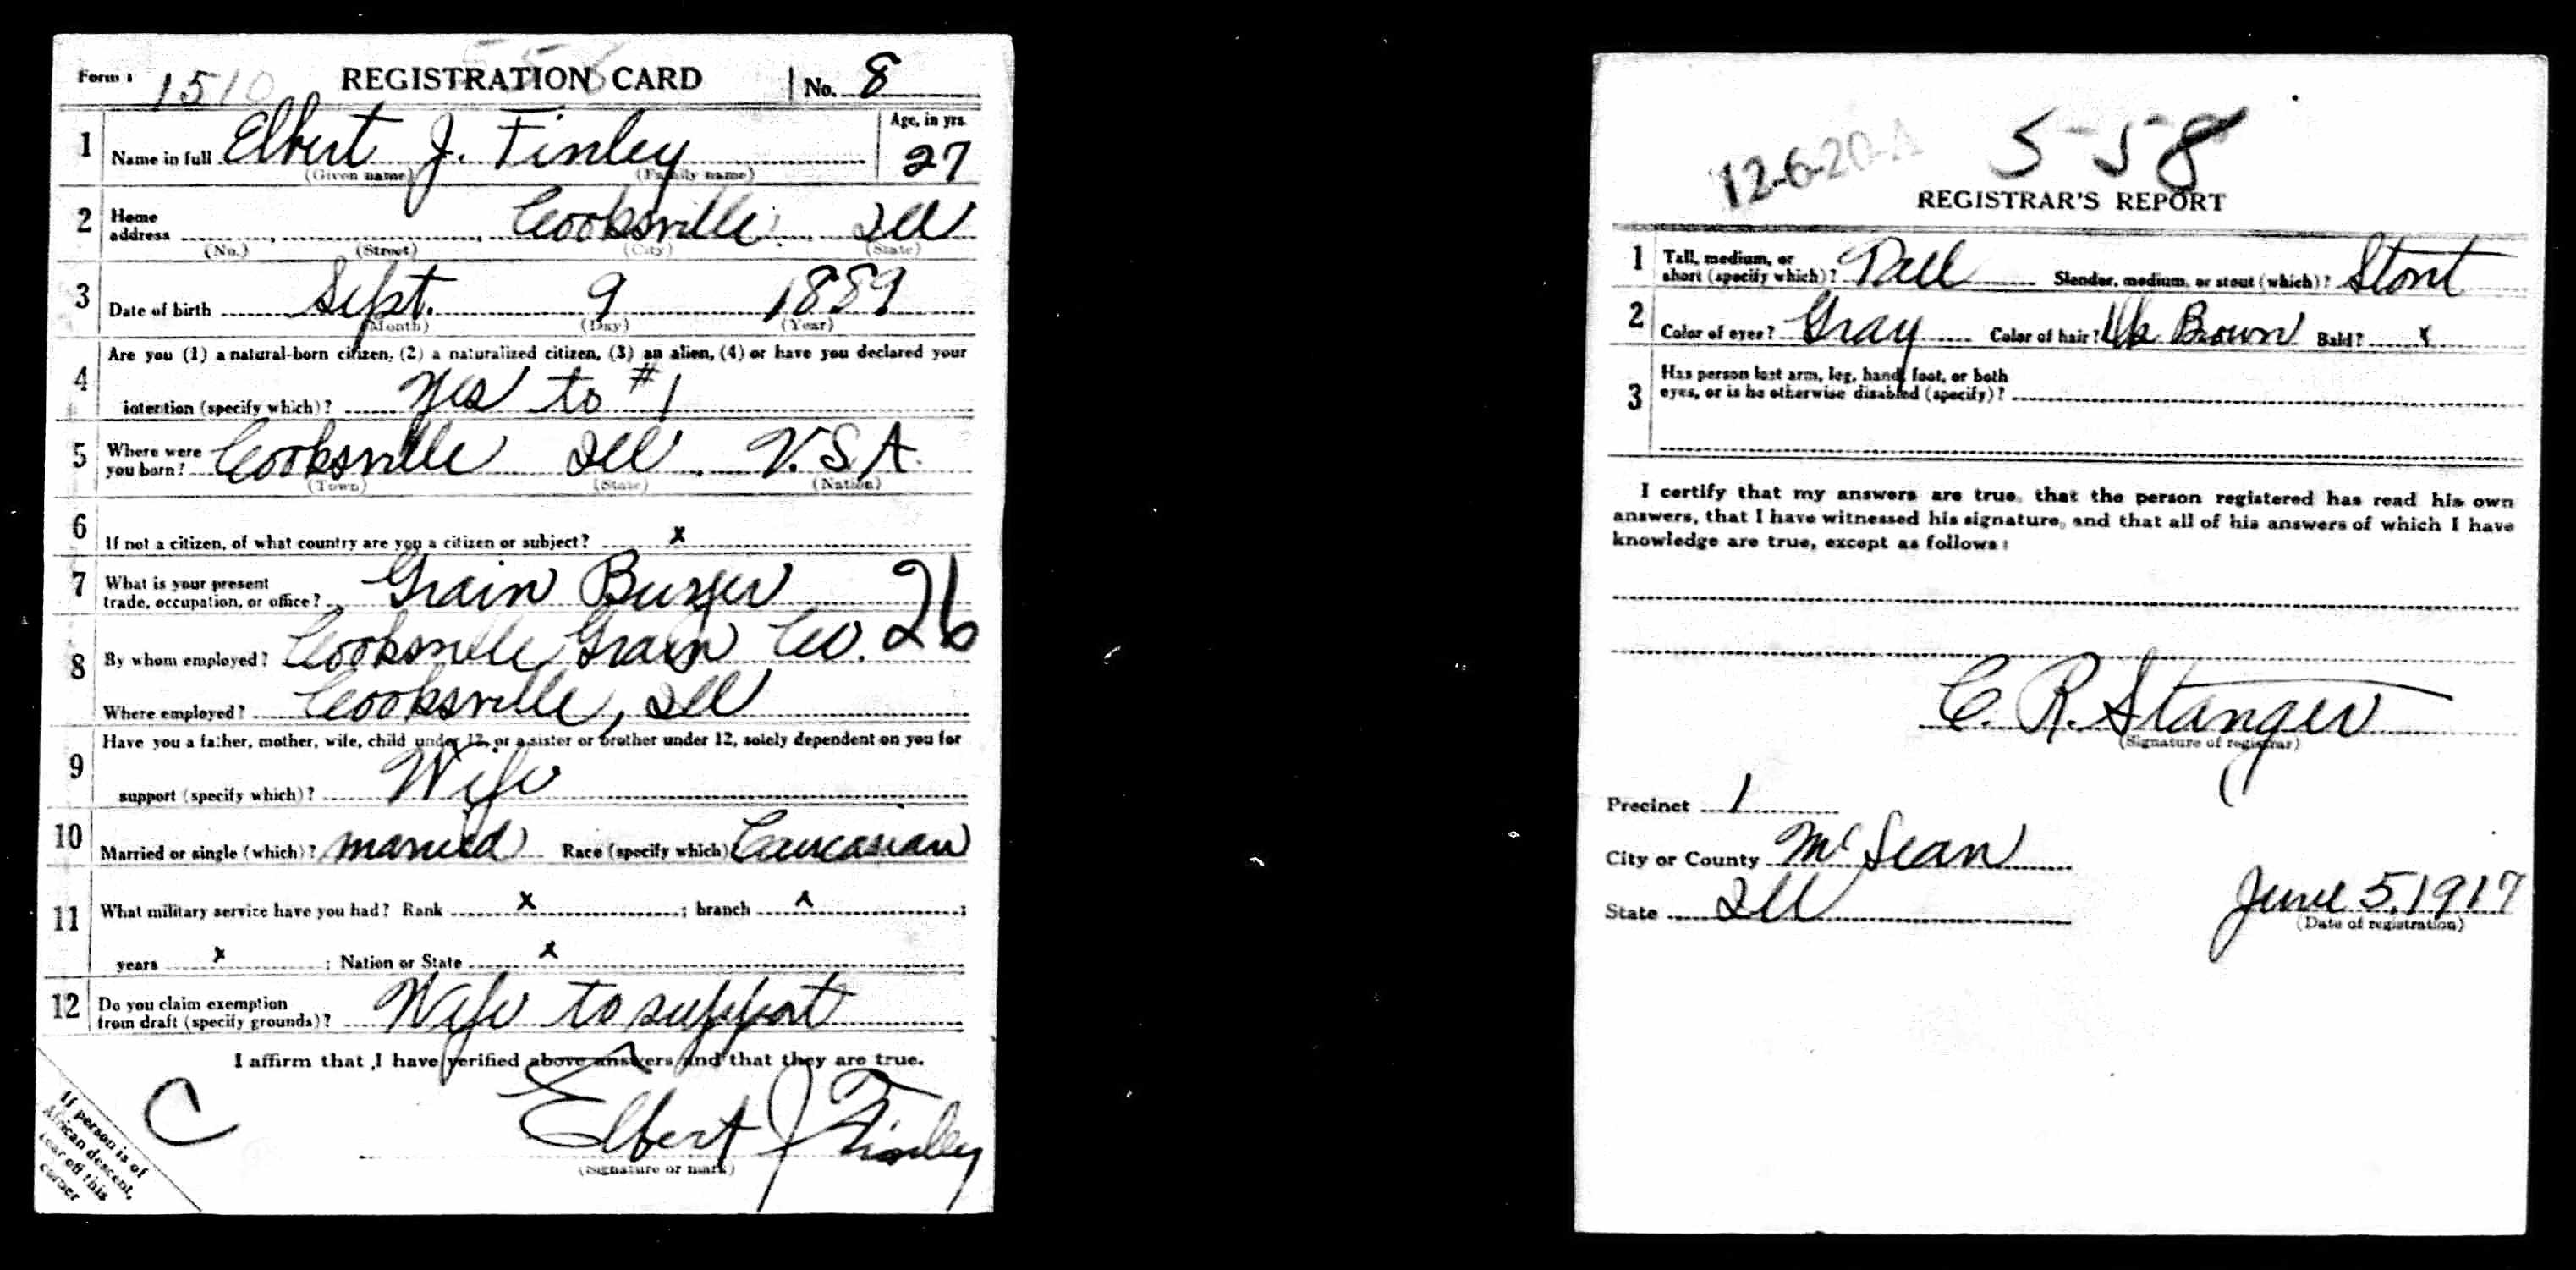 Form 1 1510 REGISTRATION CARD No. 8
1 Name in full Elbert J. Finley Age, in yrs. 27
(Given name) (Family name)
2 Home address Cooksville, Ill
(No.) (Street) (City) (State)
3 Date of birth Sept. 9 1889
(Month) (Day) (Year)
Are you (1) a natural-born citizen, (2) a naturalized citizen, (3) an alien, (4) or have you declared your
4 intention (specify which)? Yes to #1
5 Where were you born? Cooksville Ill. U.S.A.
(Town) (State) (Nation)
6 If not a citizen, of what country are you a citizen or subject? x
7 What is your present trade, occupation, or office? Grain Buyer 26
8 By whom employed? Cooksville Grain Co.
Where employed? Cooksville, Ill
Have you a father, mother, wife, child under 12, or a sister or brother under 12, solely dependent on you for
9 support (specify which)? Wife
10 Married or single (which)? married Race (specify which) Caucasian
11 What military service have you had? Rank x ; branch x ;
years x ; Nation or State x
12 Do you claim exemption from draft (specify grounds)? Wife to support
I affirm that I have verified above answers and that they are true.
C
Elbert J Finley
(Signature or mark)
If person is of
African descent,
tear off this
corner
12-6-20-A 558
REGISTRAR'S REPORT
1 Tall, medium, or short (specify which)? Tall Slender, medium, or stout (which)? Stout
2 Color of eyes? Gray Color of hair? Dk Brown Bald? x
3 Has person lost arm, leg, hand, foot, or both
eyes, or is he otherwise disabled (specify)?
I certify that my answers are true, that the person registered has read his own
answers, that I have witnessed his signature, and that all of his answers of which I have
knowledge are true, except as follows:
C. R. Stanger
(Signature of registrar)
Precinct 1
City or County McLean
State Ill June 5, 1917
(Date of registration)